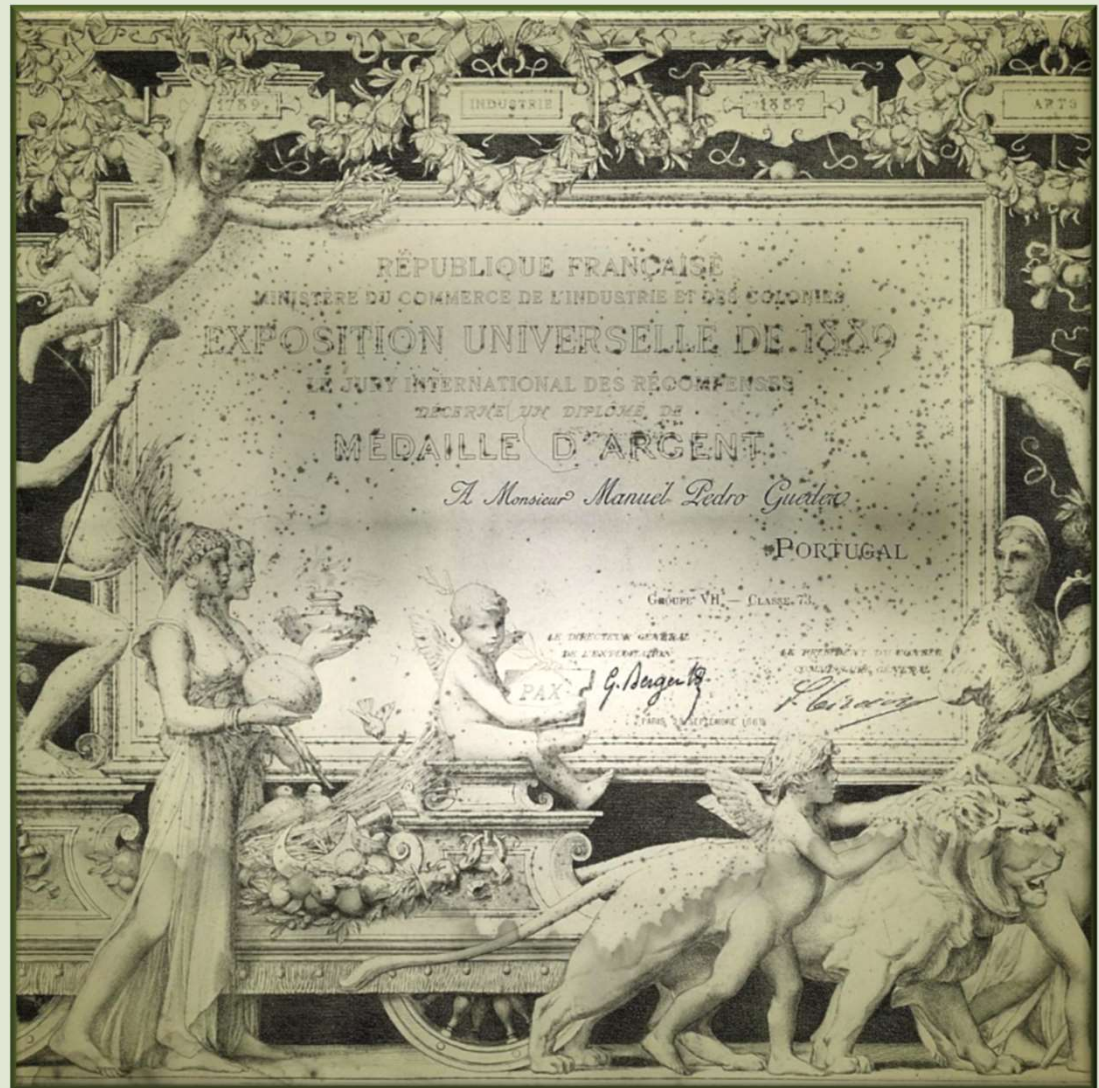 1789.
INDUSTRIE
1889
ARTS
RÉPUBLIQUE FRANÇAISE
MINISTÈRE DU COMMERCE DE L'INDUSTRIE ET DES COLONIES
EXPOSITION UNIVERSELLE DE 1889
LE JURY INTERNATIONAL DES RÉCOMPENSES
DÉCERNE UN DIPLÔME DE
MÉDAILLE D'ARGENT
A Monsieur Manuel Pedro Guedes
PORTUGAL
GROUPE VII. — CLASSE 73.
LE DIRECTEUR GÉNÉRAL
DE L'EXPLOITATION
G. Berger
LE PRÉSIDENT DU CONSEIL
COMMISSAIRE GÉNÉRAL
PAX
PARIS, SEPTEMBRE 1889